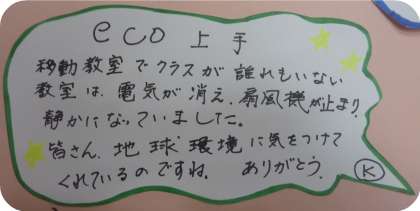 eco 上手
移動教室でクラスが誰れもいない
教室は、電気が消え、扇風機が止まり、
静かになっていました。
皆さん、地球環境に気をつけて
くれているのですね。 ありがとう。
K